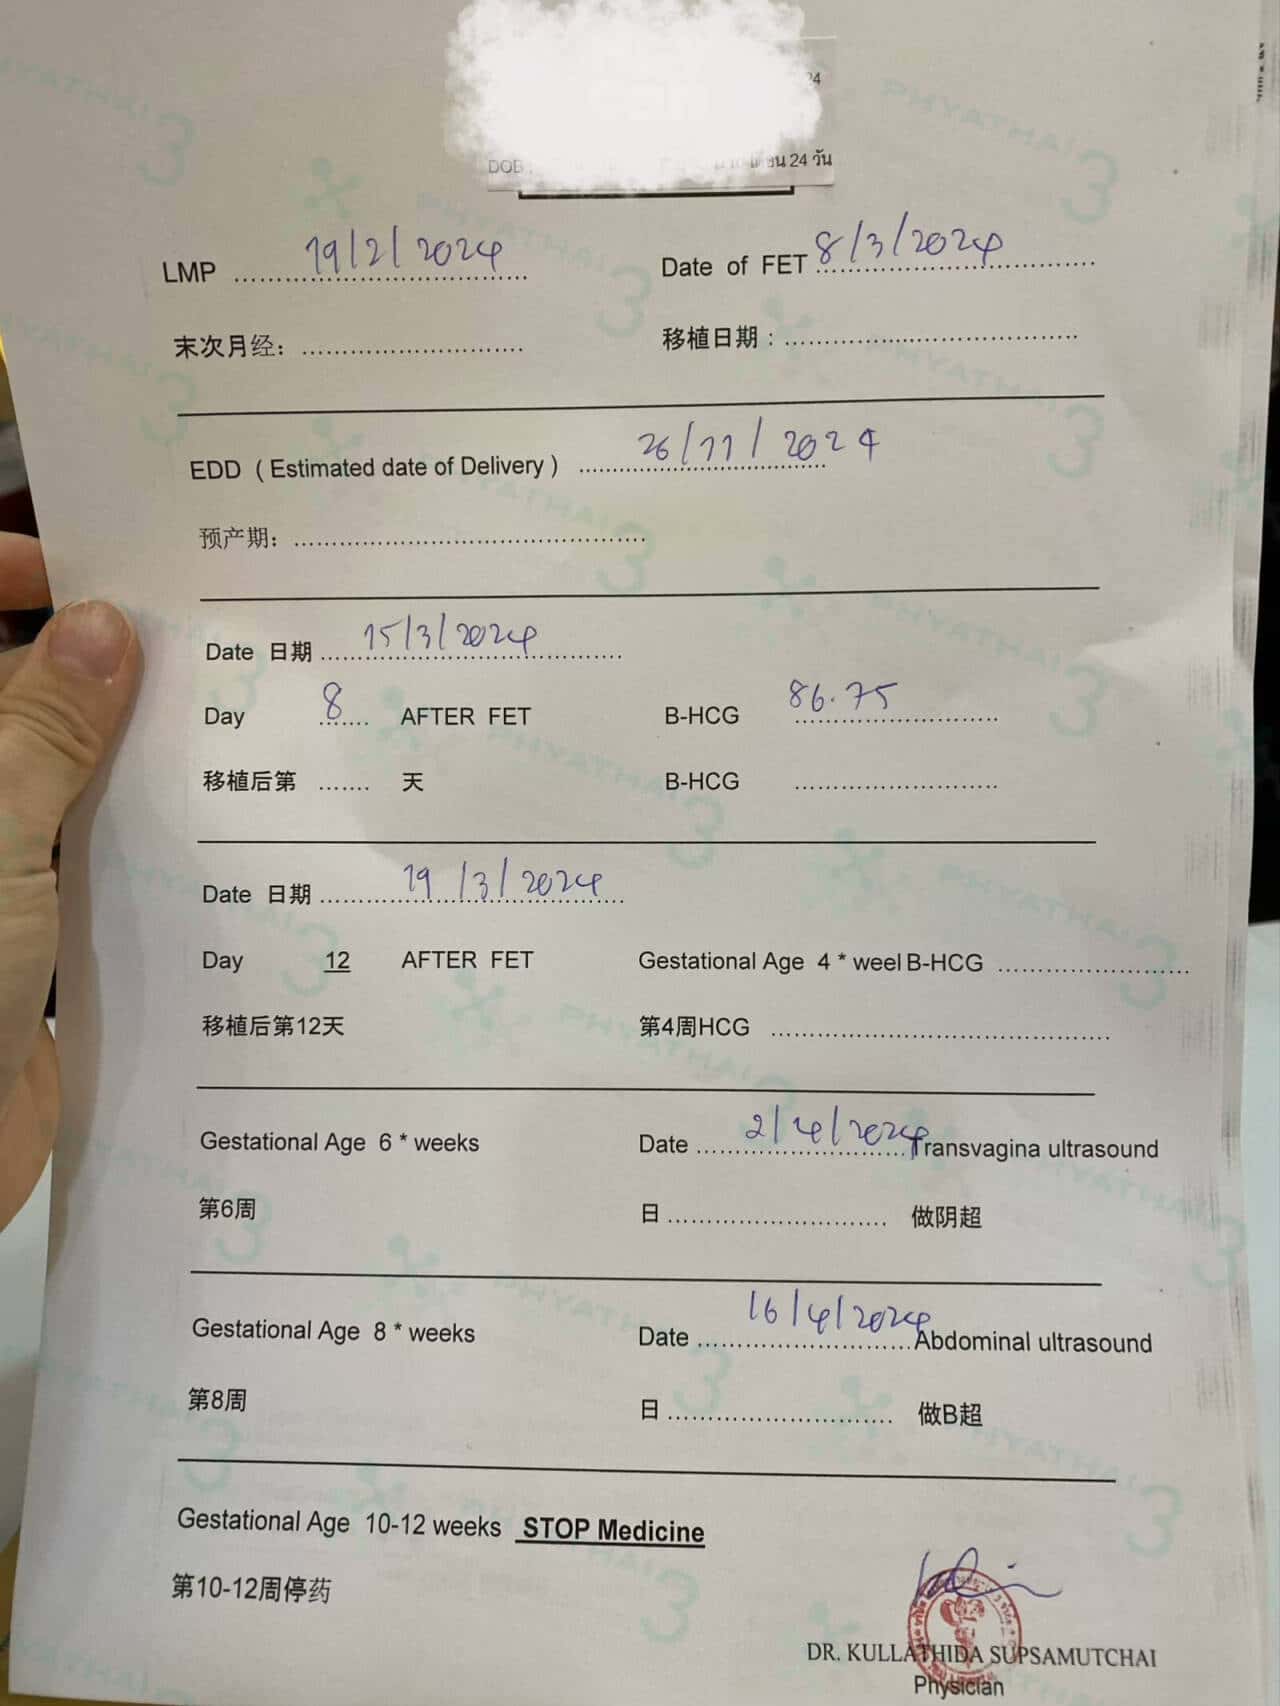 24
DOB
24 วัน
LMP 19/2/2024 Date of FET 8/3/2024
末次月经： 移植日期：
EDD ( Estimated date of Delivery ) 26/11/2024
预产期：
Date 日期 15/3/2024
Day 8 AFTER FET B-HCG 86.75
移植后第 天 B-HCG
Date 日期 19/3/2024
Day 12 AFTER FET Gestational Age 4 * weel B-HCG
移植后第12天 第4周HCG
Gestational Age 6 * weeks Date 2/4/2024 Transvagina ultrasound
第6周 日 做阴超
Gestational Age 8 * weeks Date 16/4/2024 Abdominal ultrasound
第8周 日 做B超
Gestational Age 10-12 weeks STOP Medicine
第10-12周停药
DR. KULLATHIDA SUPSAMUTCHAI
Physician
PHYATHAI 3